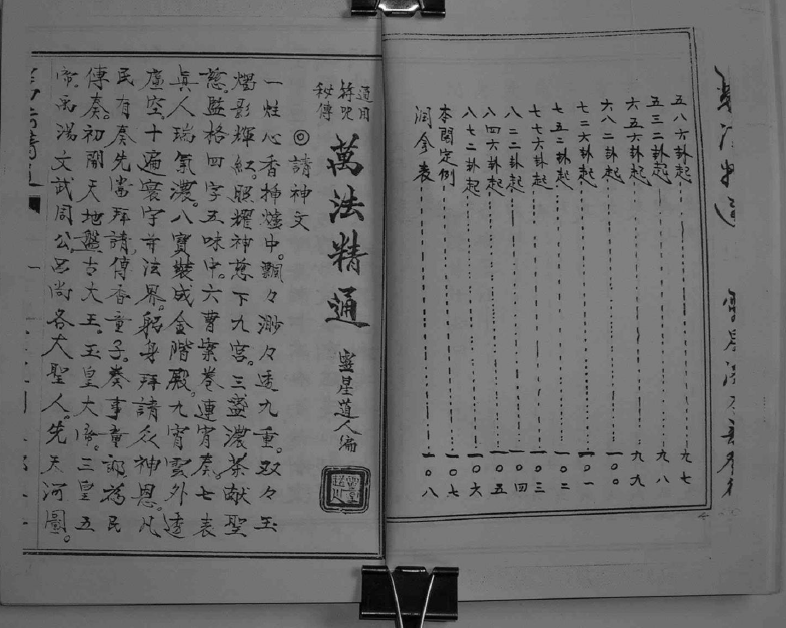 五八六卦起 九七
五三二卦起 九八
六五六卦起 九九
六八二卦起 一〇〇
七二六卦起 一〇一
七五二卦起 一〇二
七七六卦起 一〇三
八二二卦起 一〇四
八四六卦起 一〇五
八七二卦起 一〇六
本閣定例 一〇七
潤金表 一〇八
通用
符咒
秘傳
萬法精通
靈星道人編
◎請神文
一炷心香插爐中。飄々渺々透九重。双々玉
燭影輝紅。照耀神慈下九宮。三盞濃茶献聖
慈。監格四字五味中。六曹案卷連宵奏。七表
真人瑞氣濃。八寶裝成金階殿。九宵雲外透
虛空。十遍寰宇並法界。躬身拜請众神恩。凡
民有奏先當拜請。傳香童子。奏事童郎。為民
傳奏。初開天地盤古大王。玉皇大帝。三皇五
帝。禹湯文武周公呂尚各大聖人。先天河圖。